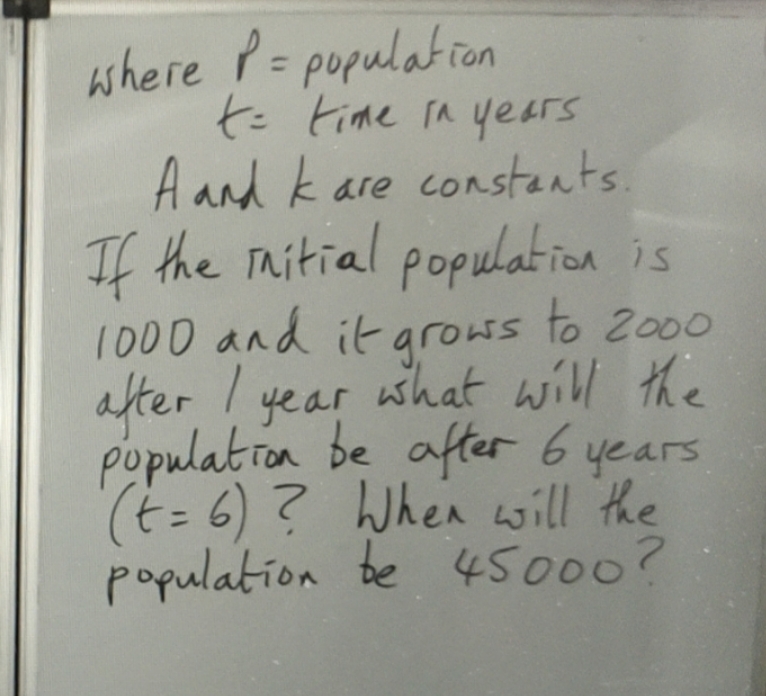 where P = population
t = time in years
A and k are constants.
If the initial population is
1000 and it grows to 2000
after 1 year what will the
population be after 6 years
(t = 6) ? When will the
population be 45000?